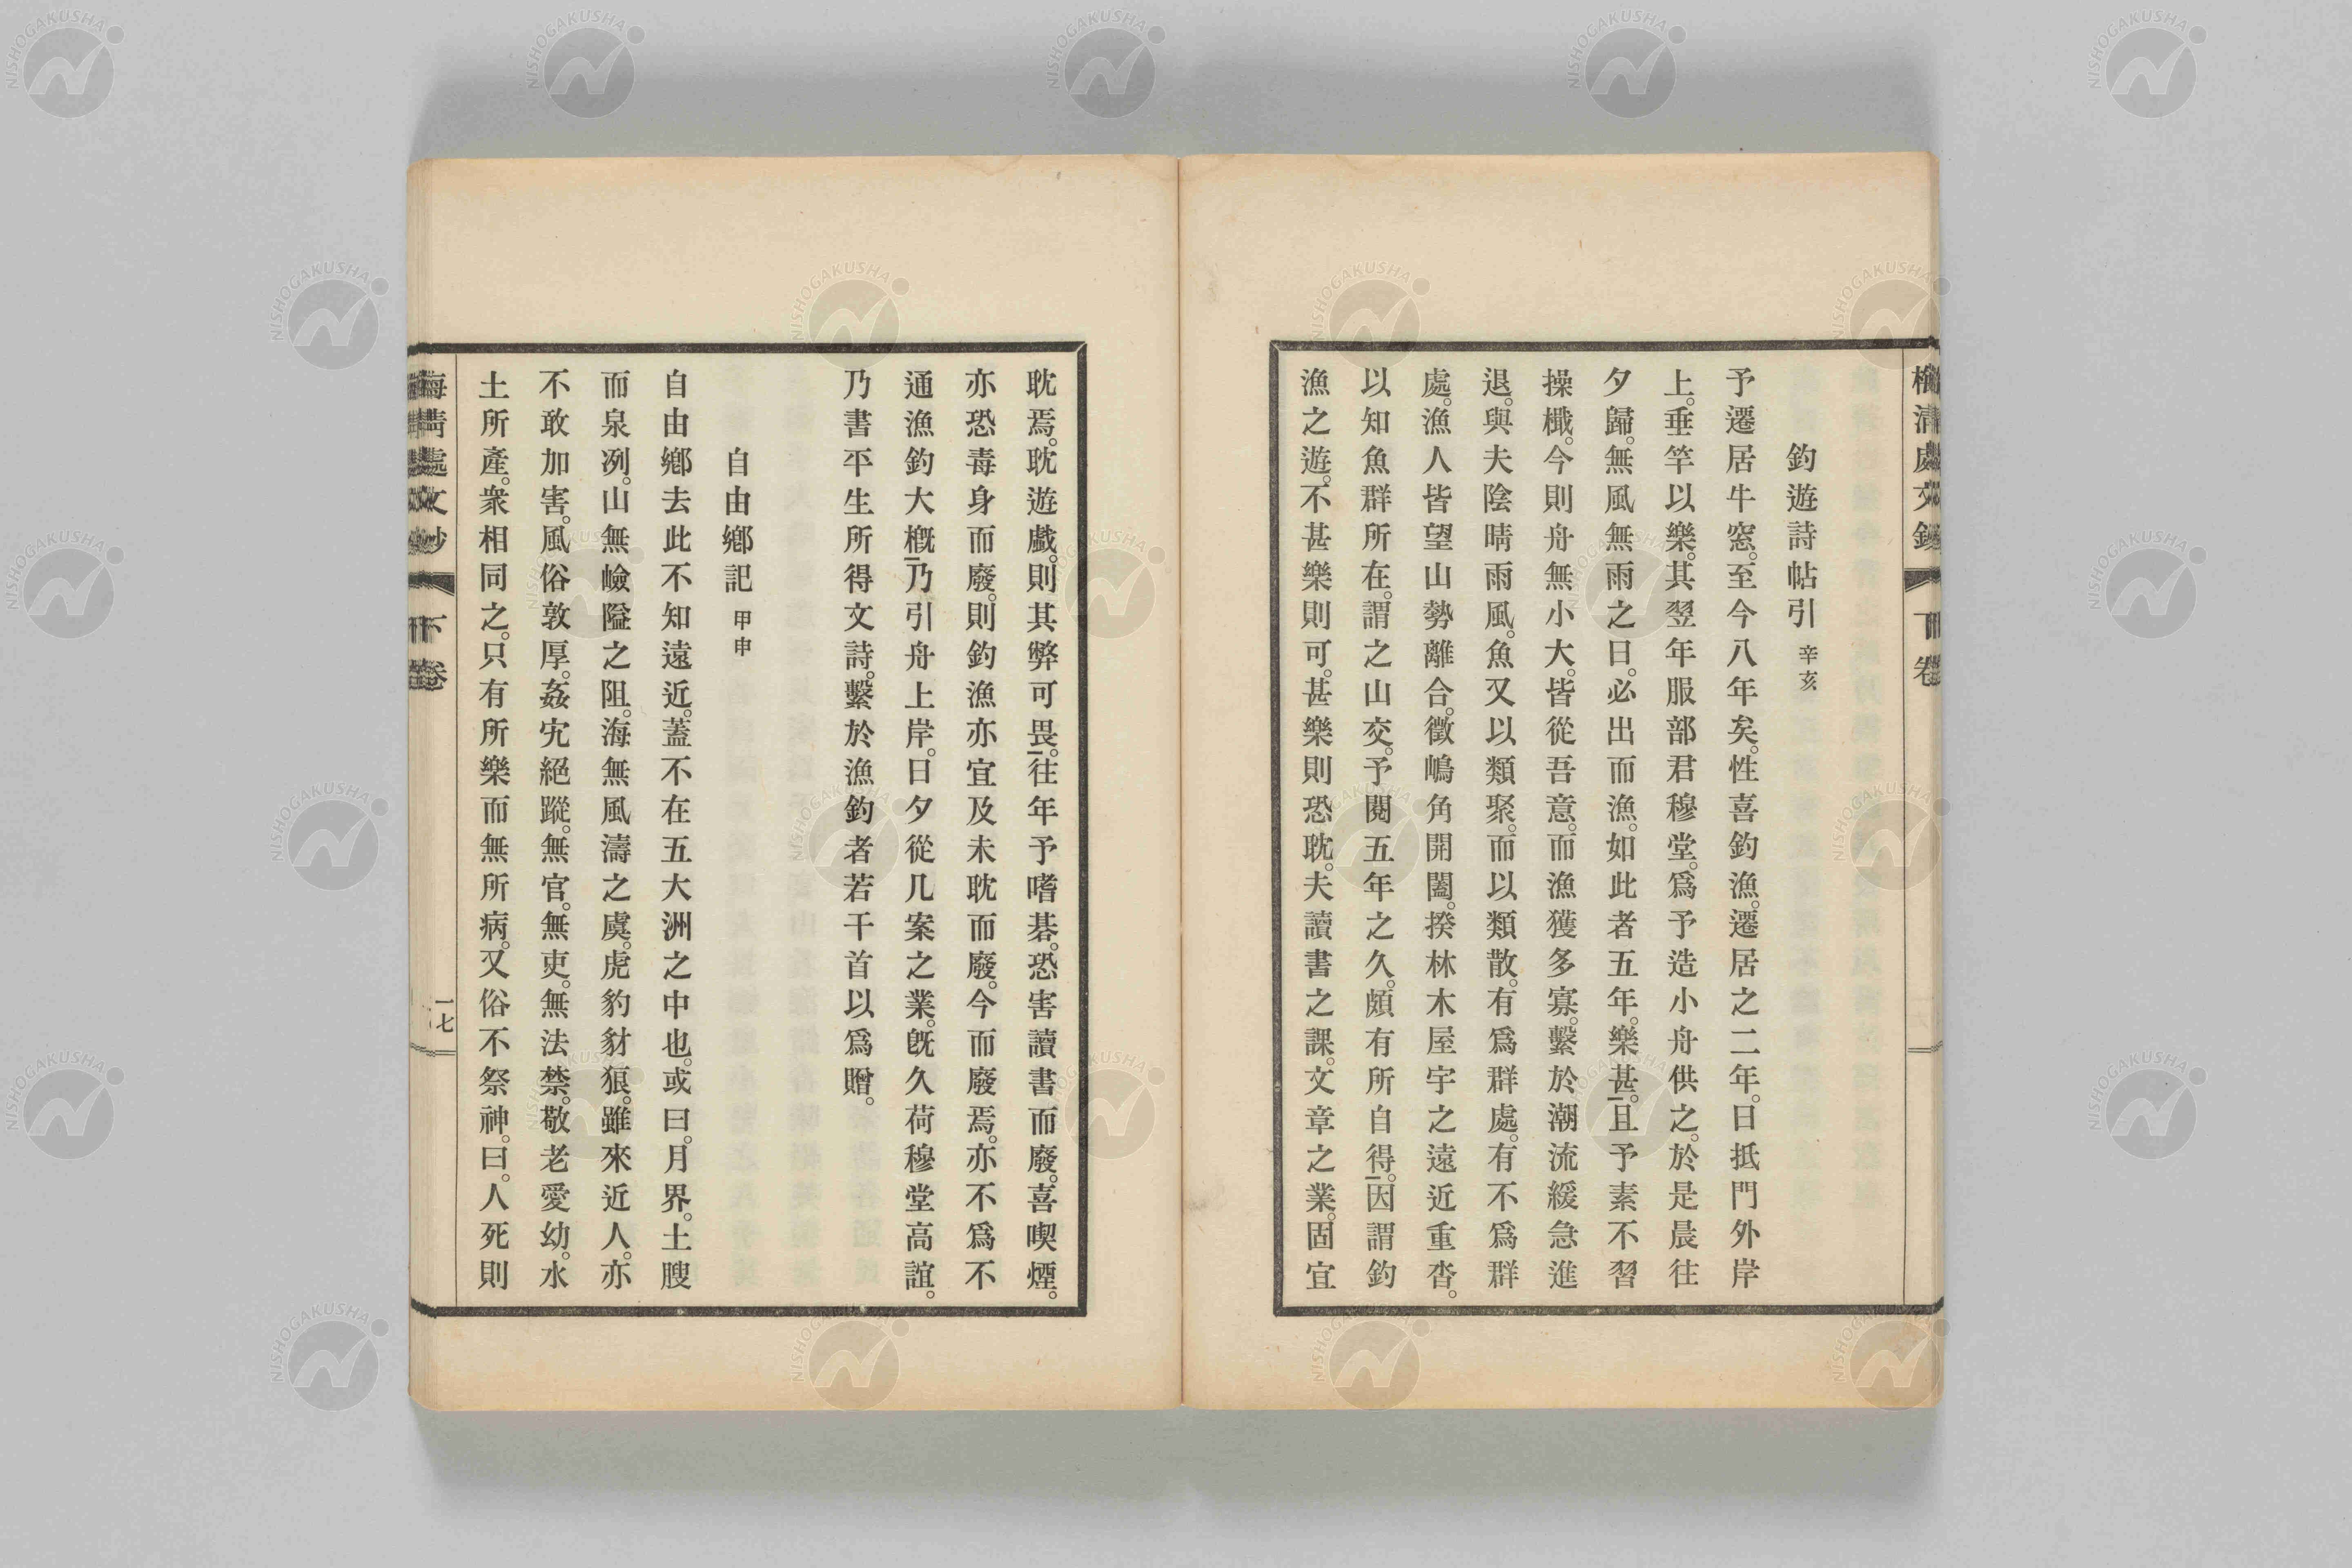 釣遊詩帖引 辛亥
予遷居牛窓。至今八年矣。性喜釣漁。遷居之二年。日抵門外岸
上。垂竿以樂。其翌年服部君穆堂。爲予造小舟供之。於是晨往
夕歸。無風無雨之日。必出而漁。如此者五年。樂甚。且予素不習
操檝。今則舟無小大。皆從吾意。而漁獲多寡。繫於潮流緩急進
退。與夫陰晴雨風。魚又以類聚。而以類散。有爲群處。有不爲群
處。漁人皆望山勢離合。徵嶋角開闔。揆林木屋宇之遠近重沓。
以知魚群所在。謂之山交。予閱五年之久。頗有所自得。因謂釣
漁之遊。不甚樂則可。甚樂則恐耽。夫讀書之課。文章之業。固宜
耽焉。耽遊戲。則其弊可畏。往年予嗜碁。恐害讀書而廢。喜喫煙。
亦恐毒身而廢。則釣漁亦宜及未耽而廢。今而廢焉。亦不爲不
通漁釣大槪。乃引舟上岸。日夕從几案之業。旣久荷穆堂高誼。
乃書平生所得文詩。繫於漁釣者若干首以爲贈。
自由鄕記 甲申
自由鄕去此不知遠近。蓋不在五大洲之中也。或曰。月界。土膄
而泉冽。山無嶮隘之阻。海無風濤之虞。虎豹豺狼。雖來近人。亦
不敢加害。風俗敦厚。姦宄絕蹤。無官。無吏。無法禁。敬老愛幼。水
土所產。衆相同之。只有所樂而無所病。又俗不祭神。曰。人死則
海淸處文鈔 下卷
一七